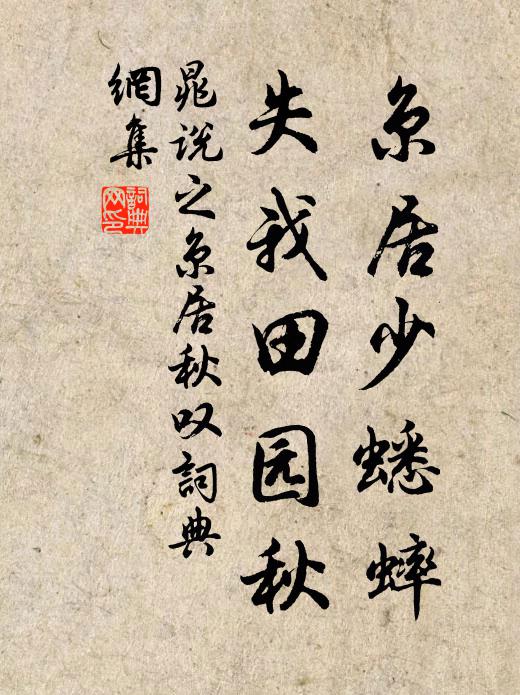 京居少蟋蟀
失我田园秋
晁说之京居秋叹詞典
網集
詞典網印